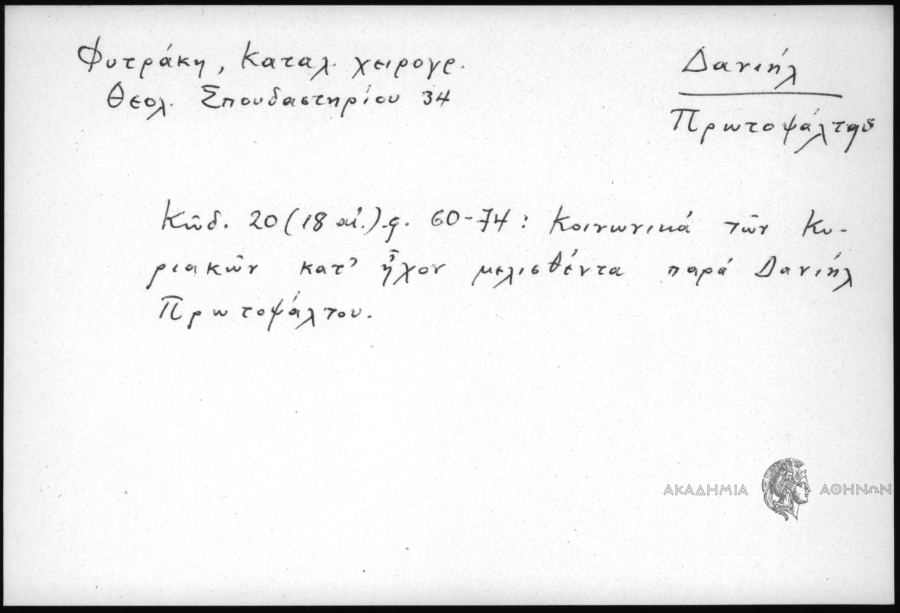 Φυτράκη, Καταλ. χειρογρ.
Θεολ. Σπουδαστηρίου 34
Δανιήλ
Πρωτοψάλτης
Κῶδ. 20 (18 αἰ.) φ. 60-74: Κοινωνικά τῶν Κυ-
ριακῶν κατ' ἦχον μελισθέντα παρά Δανιήλ
Πρωτοψάλτου.
ΑΚΑΔΗΜΙΑ ΑΘΗΝΩΝ